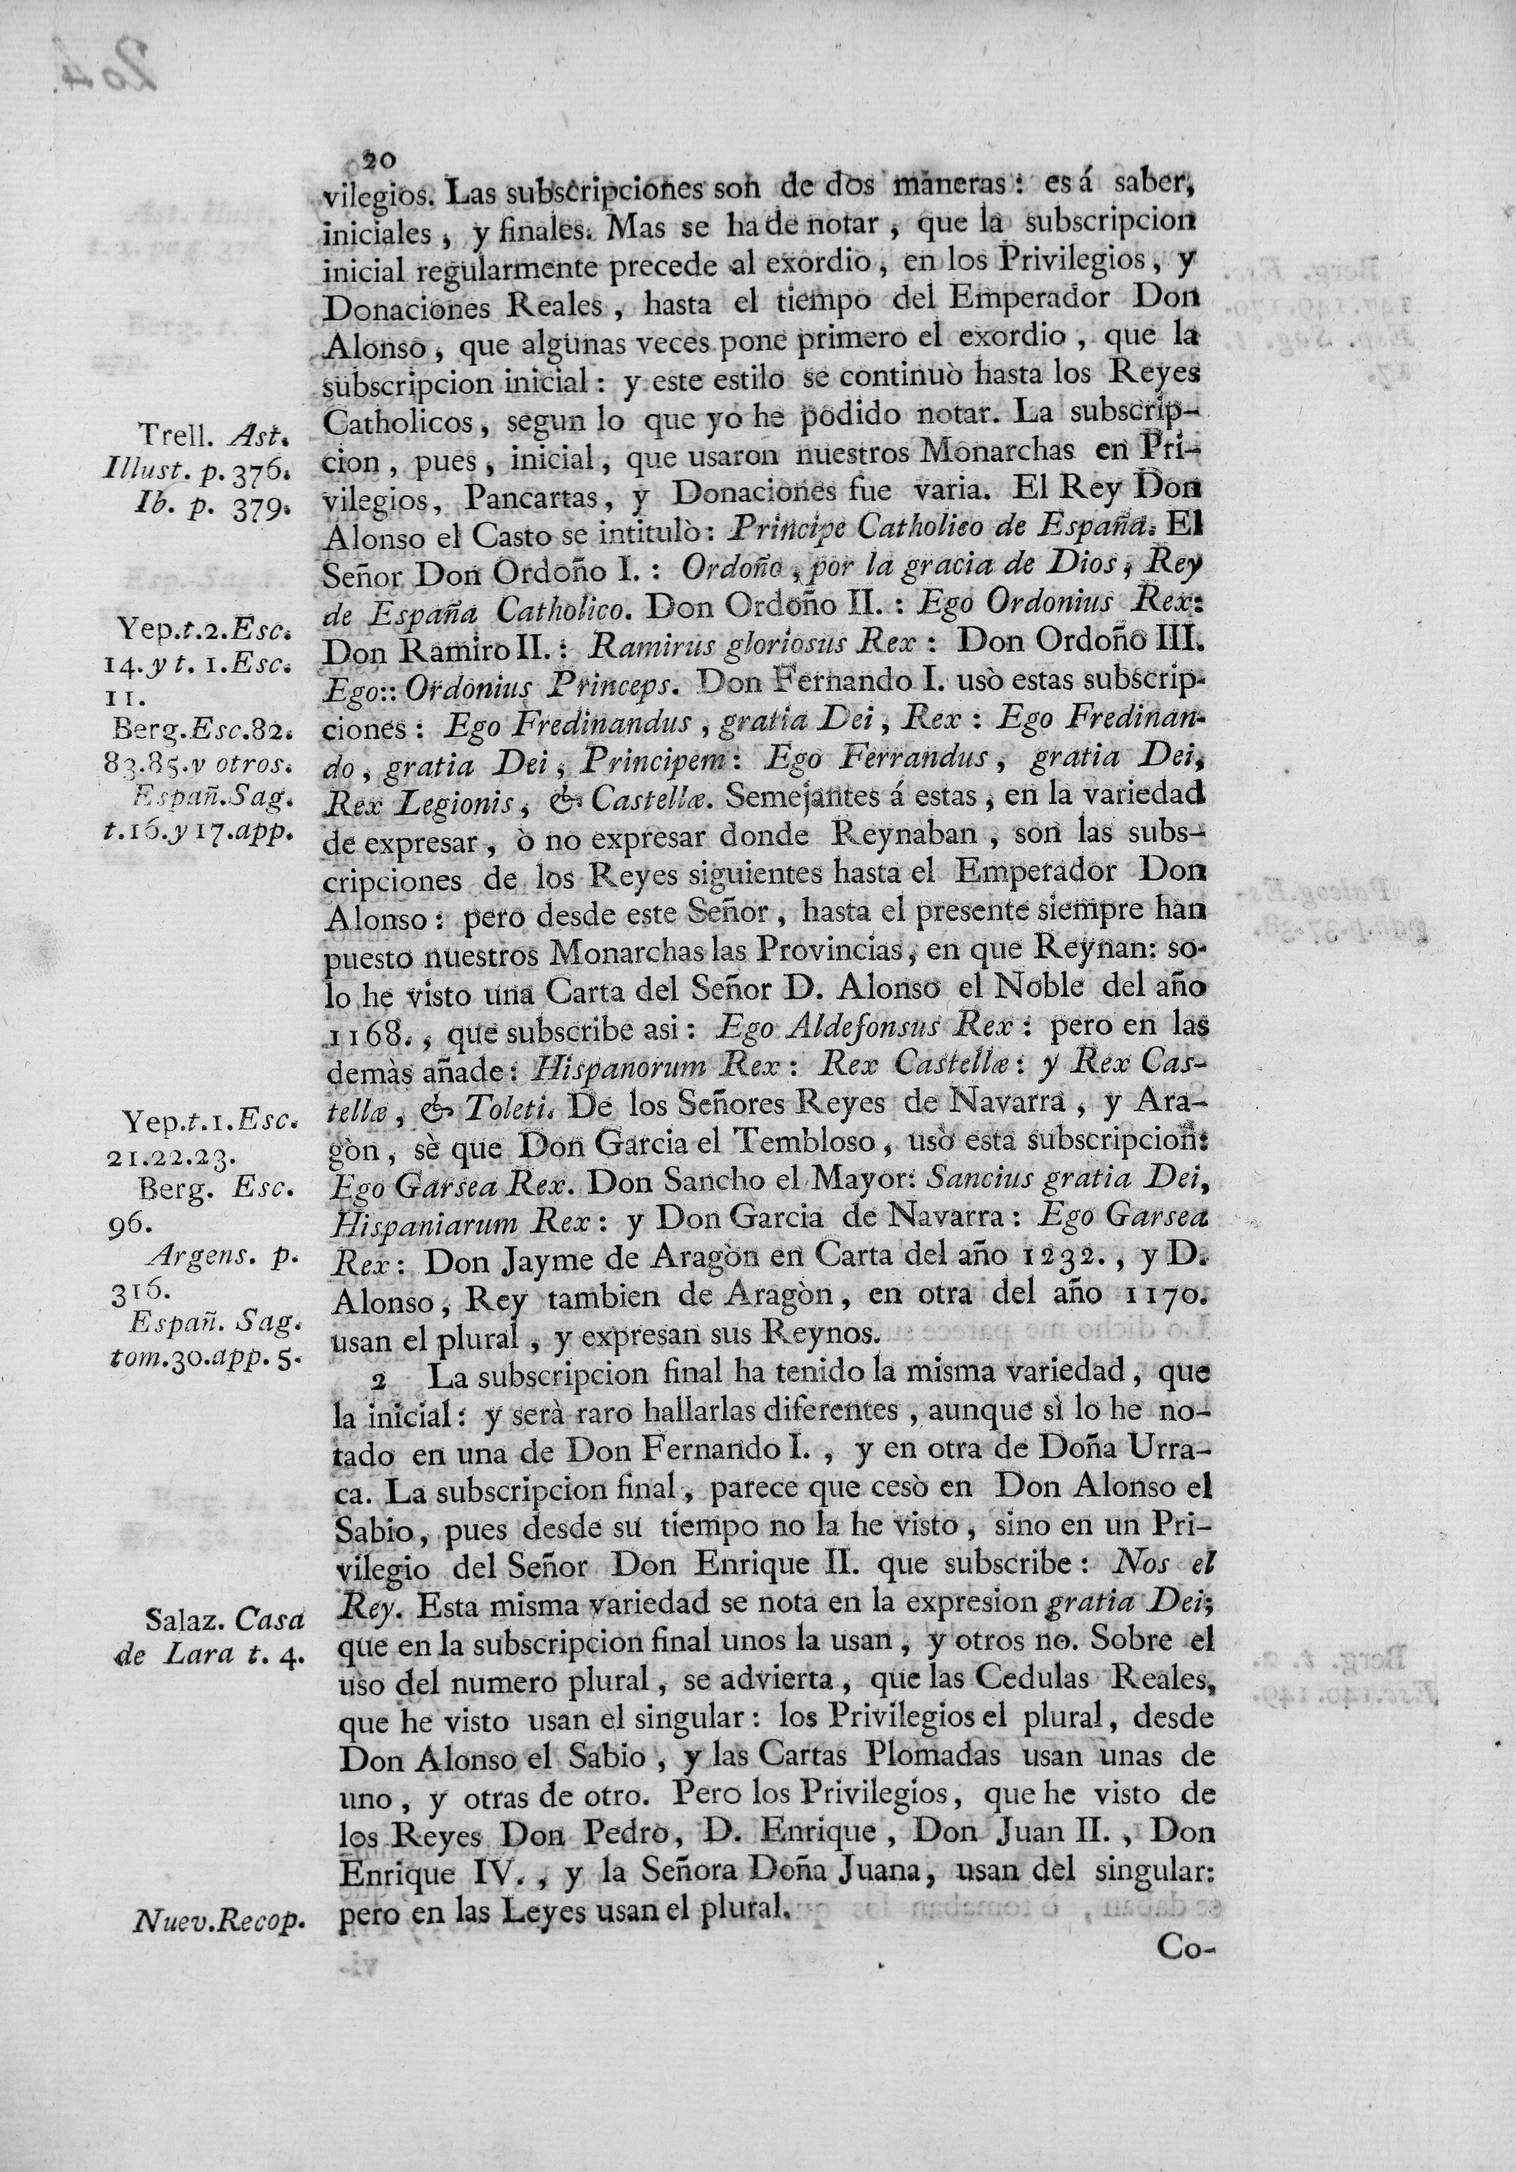 20
vilegios. Las subscripciones son de dos maneras: es á saber,
iniciales, y finales. Mas se ha de notar, que la subscripcion
inicial regularmente precede al exordio, en los Privilegios, y
Donaciones Reales, hasta el tiempo del Emperador Don
Alonso, que algunas veces pone primero el exordio, que la
subscripcion inicial: y este estilo se continuò hasta los Reyes
Catholicos, segun lo que yo he podido notar. La subscrip-
cion, pues, inicial, que usaron nuestros Monarchas en Pri-
vilegios, Pancartas, y Donaciones fue varia. El Rey Don
Alonso el Casto se intitulò: Principe Catholico de España. El
Señor Don Ordoño I.: Ordoño, por la gracia de Dios, Rey
de España Catholico. Don Ordoño II.: Ego Ordonius Rex:
Don Ramiro II.: Ramirus gloriosus Rex: Don Ordoño III.
Ego:: Ordonius Princeps. Don Fernando I. usò estas subscrip-
ciones: Ego Fredinandus, gratia Dei, Rex: Ego Fredinan-
do, gratia Dei, Principem: Ego Ferrandus, gratia Dei,
Rex Legionis, & Castellæ. Semejantes á estas, en la variedad
de expresar, ò no expresar donde Reynaban, son las subs-
cripciones de los Reyes siguientes hasta el Emperador Don
Alonso: pero desde este Señor, hasta el presente siempre han
puesto nuestros Monarchas las Provincias, en que Reynan: so-
lo he visto una Carta del Señor D. Alonso el Noble del año
1168., que subscribe asi: Ego Aldefonsus Rex: pero en las
demàs añade: Hispanorum Rex: Rex Castellæ: y Rex Cas-
tellæ, & Toleti. De los Señores Reyes de Navarra, y Ara-
gòn, sè que Don Garcia el Tembloso, usò esta subscripcion:
Ego Garsea Rex. Don Sancho el Mayor: Sancius gratia Dei,
Hispaniarum Rex: y Don Garcia de Navarra: Ego Garsea
Rex: Don Jayme de Aragòn en Carta del año 1232., y D.
Alonso, Rey tambien de Aragòn, en otra del año 1170.
usan el plural, y expresan sus Reynos.
2 La subscripcion final ha tenido la misma variedad, que
la inicial: y serà raro hallarlas diferentes, aunque sì lo he no-
tado en una de Don Fernando I., y en otra de Doña Urra-
ca. La subscripcion final, parece que cesò en Don Alonso el
Sabio, pues desde su tiempo no la he visto, sino en un Pri-
vilegio del Señor Don Enrique II. que subscribe: Nos el
Rey. Esta misma variedad se nota en la expresion gratia Dei;
que en la subscripcion final unos la usan, y otros no. Sobre el
uso del numero plural, se advierta, que las Cedulas Reales,
que he visto usan el singular: los Privilegios el plural, desde
Don Alonso el Sabio, y las Cartas Plomadas usan unas de
uno, y otras de otro. Pero los Privilegios, que he visto de
los Reyes Don Pedro, D. Enrique, Don Juan II., Don
Enrique IV., y la Señora Doña Juana, usan del singular:
pero en las Leyes usan el plural.
Co-
Trell. Ast.
Illust. p. 376.
Ib. p. 379.
Yep.t.2.Esc.
14. y t. 1.Esc.
11.
Berg.Esc.82.
83.85.y otros.
Españ.Sag.
t.16.y 17.app.
Yep.t.1.Esc.
21.22.23.
Berg. Esc.
96.
Argens. p.
316.
Españ. Sag.
tom.30.app. 5.
Salaz. Casa
de Lara t. 4.
Nuev.Recop.